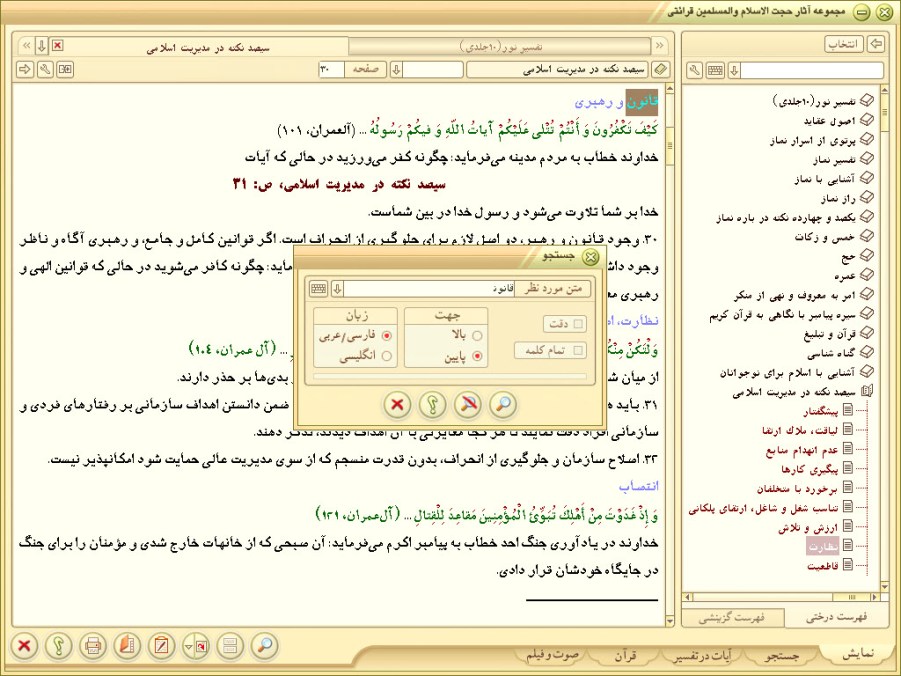 مجموعه آثار حجت الاسلام والمسلمین قرائتی
انتخاب
تفسیر نور(۱۰جلدی)
اصول عقاید
پرتوی از اسرار نماز
تفسیر نماز
آشنایی با نماز
راز نماز
یکصد و چهارده نکته در باره نماز
خمس و زکات
حج
عمره
امر به معروف و نهی از منکر
سیره پیامبر با نگاهی به قرآن کریم
قرآن و تبلیغ
گناه شناسی
آشنایی با اسلام برای نوجوانان
سیصد نکته در مدیریت اسلامی
پیشگفتار
لیاقت، ملاك ارتقا
عدم انهدام منابع
پیگیری کارها
برخورد با متخلفان
تناسب شغل و شاغل، ارتقای پلکانی
ارزش و تلاش
نظارت
قاطعیت
فهرست درختی
فهرست گزینشی
تفسیر نور(۱۰جلدی)
سیصد نکته در مدیریت اسلامی
سیصد نکته در مدیریت اسلامی
صفحه
۳۰
قانون و رهبری
كَيْفَ تَكْفُرُونَ وَ أَنْتُمْ تُتْلى‏ عَلَيْكُمْ آياتُ اللَّهِ وَ فيكُمْ رَسُولُهُ ... (آل‌عمران، ۱۰۱)
خداوند خطاب به مردم مدینه می‌فرماید: چگونه کفر می‌ورزید در حالی که آیات
سیصد نکته در مدیریت اسلامی، ص: ۳۱
خدا بر شما تلاوت می‌شود و رسول خدا در بین شماست.
۳۰. وجود قانون و رهبر، دو اصل لازم برای جلوگیری از انحراف است. اگر قوانین کامل و جامع، و رهبری آگاه و ناظر
وجود داش ماید: چگونه کافر می‌شوید در حالی که قوانین الهی و
رهبری مع
نظارت، ام
وَلْتَكُنْ مِنْكُ ... (آل عمران، ۱۰۴)
از میان ش بدی‌ها بر حذر دارند.
۳۱. باید ه ضمن دانستن اهداف سازمانی بر رفتارهای فردی و
سازمانی افراد دقت نمایند تا هر کجا مغایرتی با آن اهداف دیدند، تذکر دهند.
۳۲. اصلاح سازمان و جلوگیری از انحراف، بدون قدرت منسجم که از سوی مدیریت عالی حمایت شود امکانپذیر نیست.
انتصاب
وَ إِذْ غَدَوْتَ مِنْ أَهْلِكَ تُبَوِّئُ الْمُؤْمِنِينَ مَقاعِدَ لِلْقِتالِ ... (آل‌عمران، ۱۲۱)
خداوند در یادآوری جنگ احد خطاب به پیامبر اکرم می‌فرماید: آن صبحی که از خانه‌ات خارج شدی و مؤمنان را برای جنگ
در جایگاه خودشان قرار دادی.
جستجو
متن مورد نظر
قانون
دقت
تمام کلمه
جهت
بالا
پایین
زبان
فارسی/عربی
انگلیسی
نمایش
جستجو
آیات در تفسیر
قرآن
صوت و فیلم